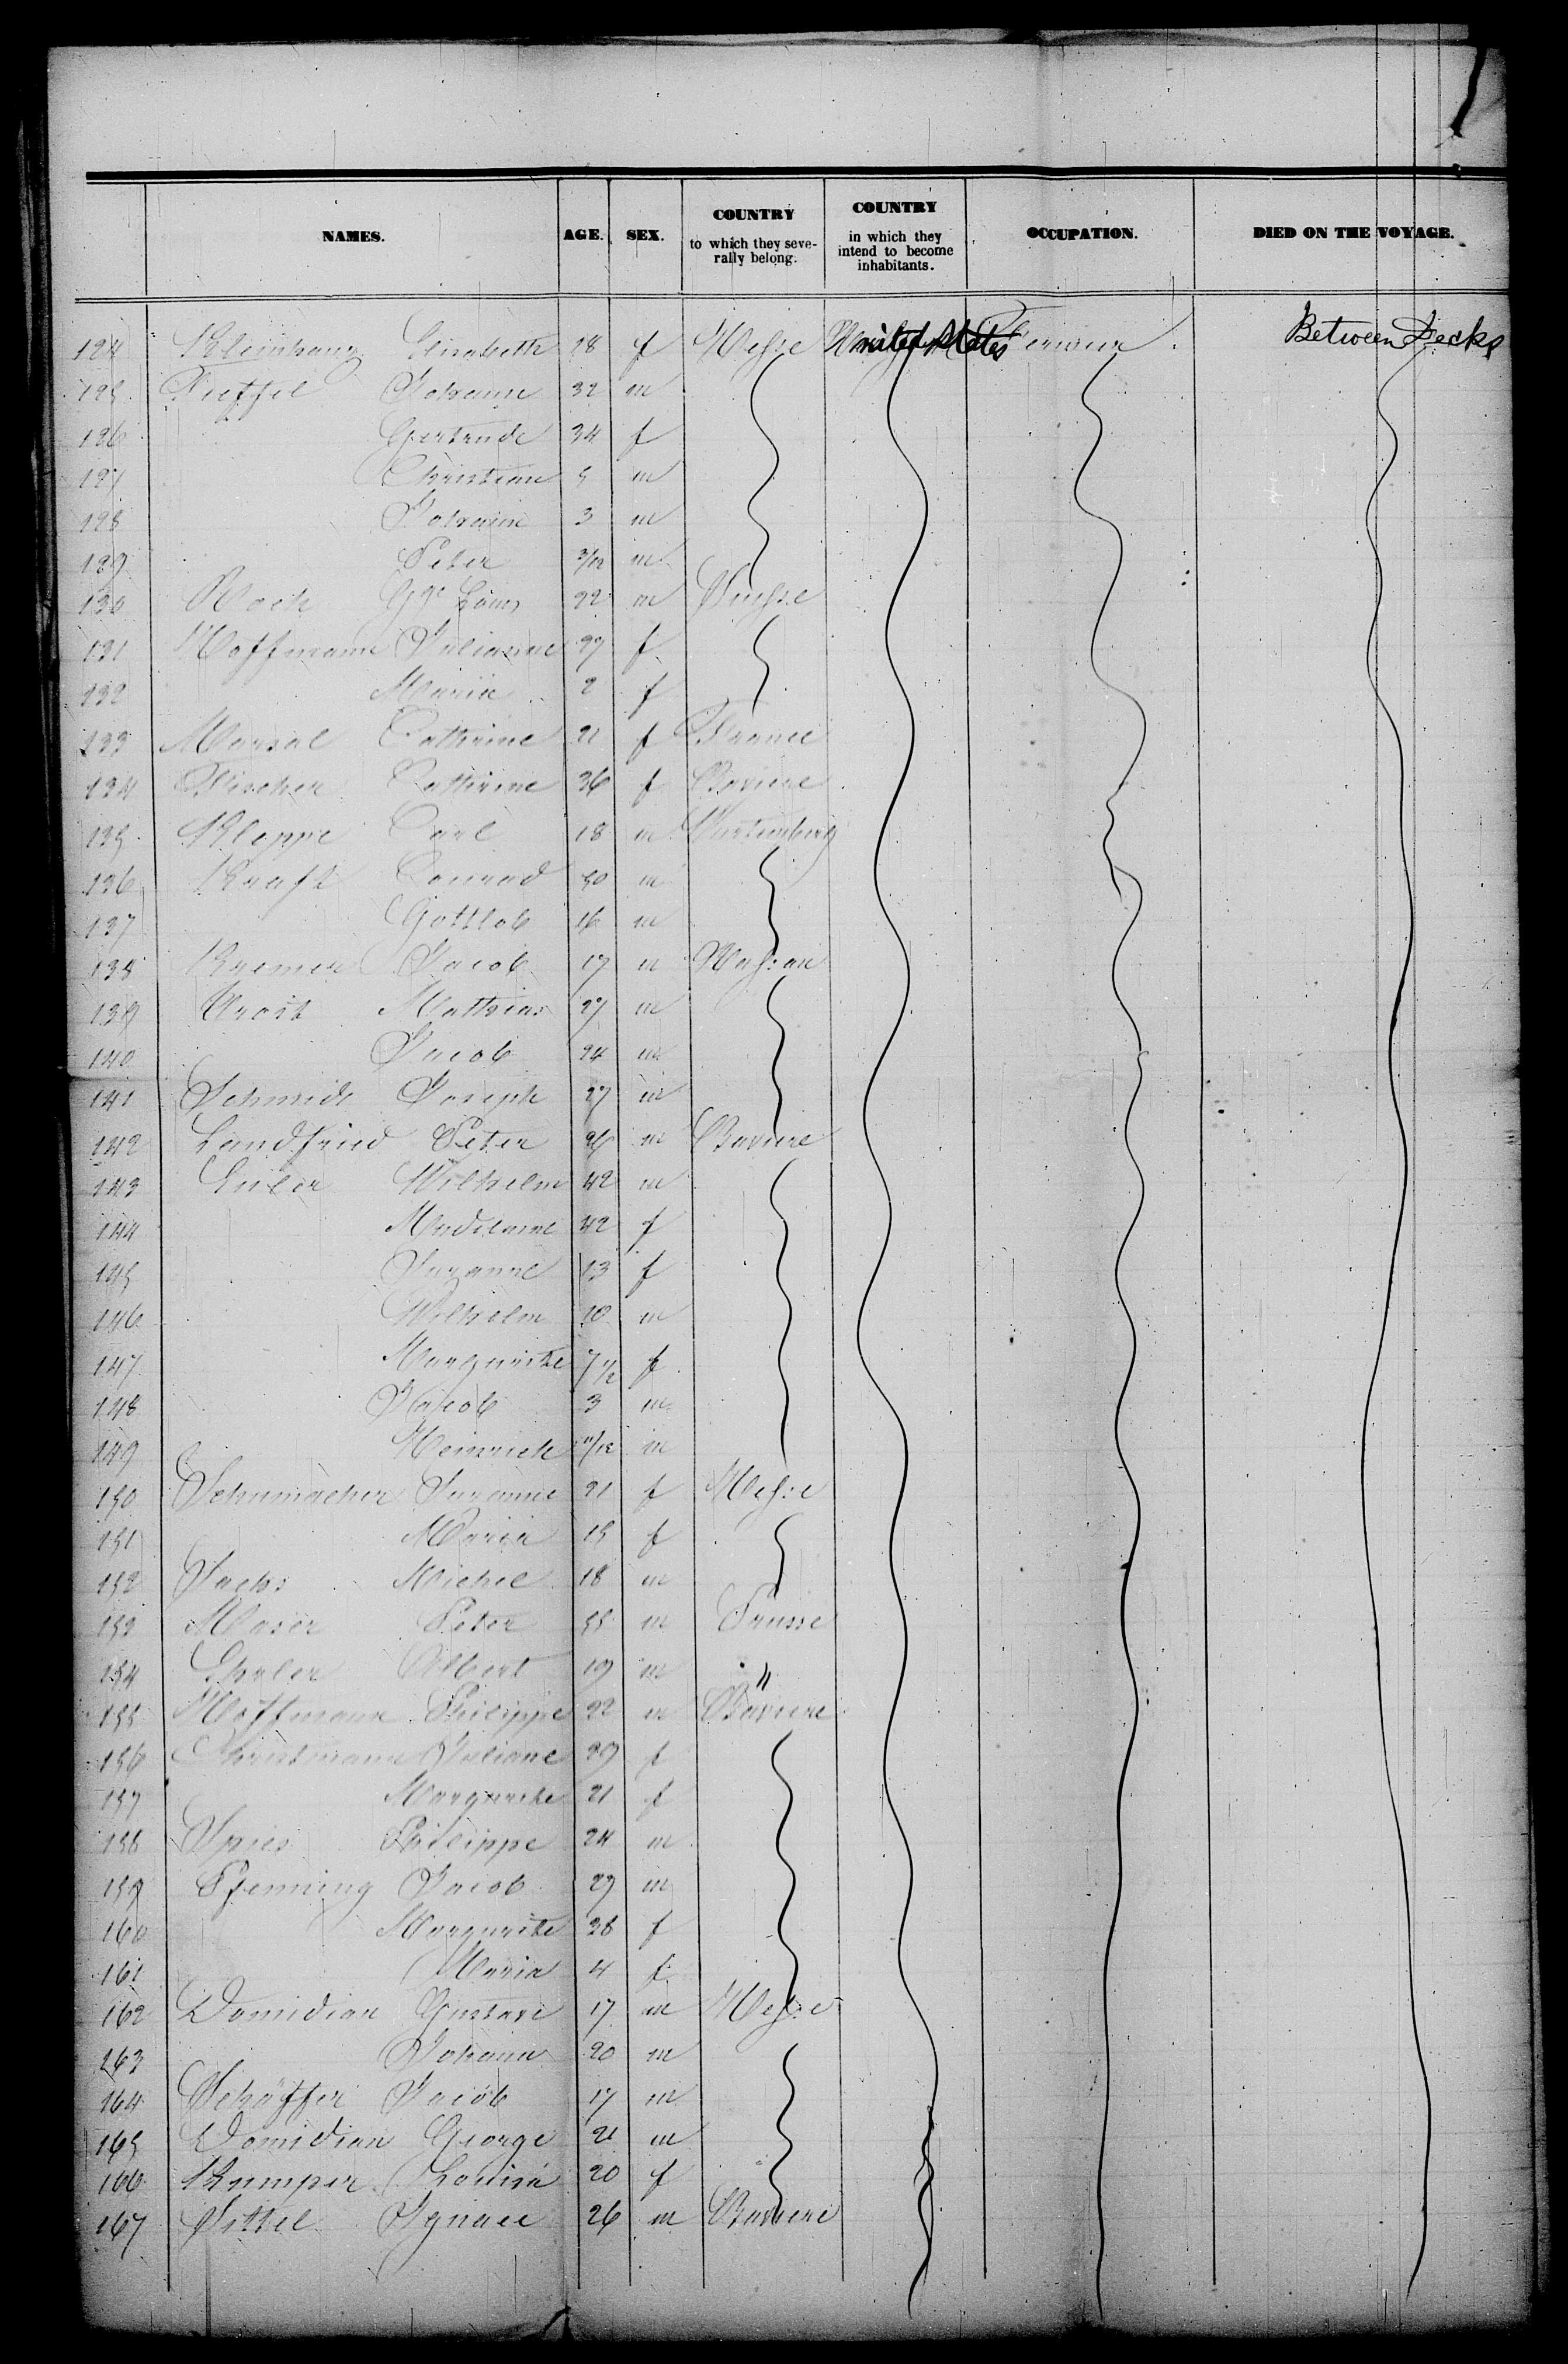 NAMES. AGE. SEX. COUNTRY to which they severally belong. COUNTRY in which they intend to become inhabitants. OCCUPATION. DIED ON THE VOYAGE.
124 Kleinhanz Elisabeth 18 f Hesse United States Between Decks
125 Johann 32 m
126 Gertrude 34 f
127 Christian 5 m
128 Johann 3 m
129 Peter 3/12 m
130 Gge Louis 22 m
131 Hoffmann Julianne 27 f
132 Maria 2 f
133 Marsal Cathrine 21 f France
134 Fischer Cathrine 36 f Baviere
135 Kleppe Carl 18 m Wurtemberg
136 Kraft Conrad 50 m
137 Gottlob 16 m
138 Kremer Jacob 17 m Nassau
139 Mathias 27 m
140 Jacob 24 m
141 Schmidt Joseph 27 m
142 Landfried Peter 26 m Baviere
143 Euler Wilhelm 42 m
144 Madelaine 42 f
145 Suzanne 13 f
146 Wilhelm 10 m
147 Marguerite 7 1/2 f
148 Jacob 3 m
149 Heinrich 11/12 m
150 Schumacher Suzanne 21 f Hesse
151 Maria 15 f
152 Sachs Michel 18 m
153 Moser Peter 55 m Prusse
154 Albert 19 m "
155 Hoffmann Philippe 22 m Baviere
156 Christmann Juliane 29 f
157 Marguerite 21 f
158 Spies Philippe 24 m
159 Pfenning Jacob 29 m
160 Marguerite 28 f
161 Maria 4 f
162 Domidian Gustave 17 m Hesse
163 Johann 20 m
164 Schäffer Jacob 17 m
165 Domidian George 21 m
166 Kumper Louisa 20 f
167 Sittel Ignace 26 m Baviere